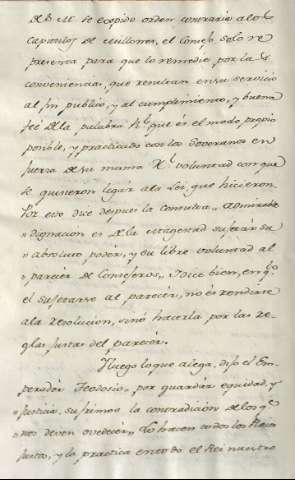 de V. M. se expidio orden contrario a los
Capitulos de Millones, el Consejo solo re
presenta para que lo remedie por las
conveniencias, que resultan en su servicio
al fin publico, y al cumplimiento, y buena
feé de la palabra Rl. que es el modo propio
ponible, y practicado con los Soveranos en
fuerza de su misma Rl. voluntad con que
se quisieron ligar a la Lei, que hicieron
Por eso dice despues la consulta,, admirable
,, dignacion es de la Magestad sujetár su
,, absoluto poder, y su libre voluntad al
,, parecér de Consejeros,, Y dice bien, en qe.
el sujetarse al parecér, no és rendirse
a la resolucion, sinó hacerla por las re-
glas justas del parecér.
Y luego lo que alega, dijo el Em
perador Teodosio,, por guardár equidad, y
,, justicia, sufrimos la contradición de los qe.
,, nos deven ovedecér,, Lo hacen todos los Reies
justos, y lo practica en todo el Rei nuestro